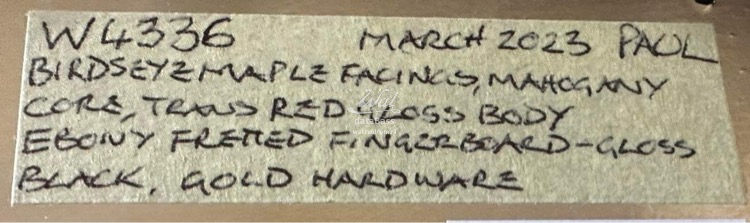 W4336 MARCH 2023 PAUL
BIRDSEYE MAPLE FACINGS, MAHOGANY
CORE, TRANS RED GLOSS BODY
EBONY FRETTED FINGERBOARD-GLOSS
BLACK, GOLD HARDWARE